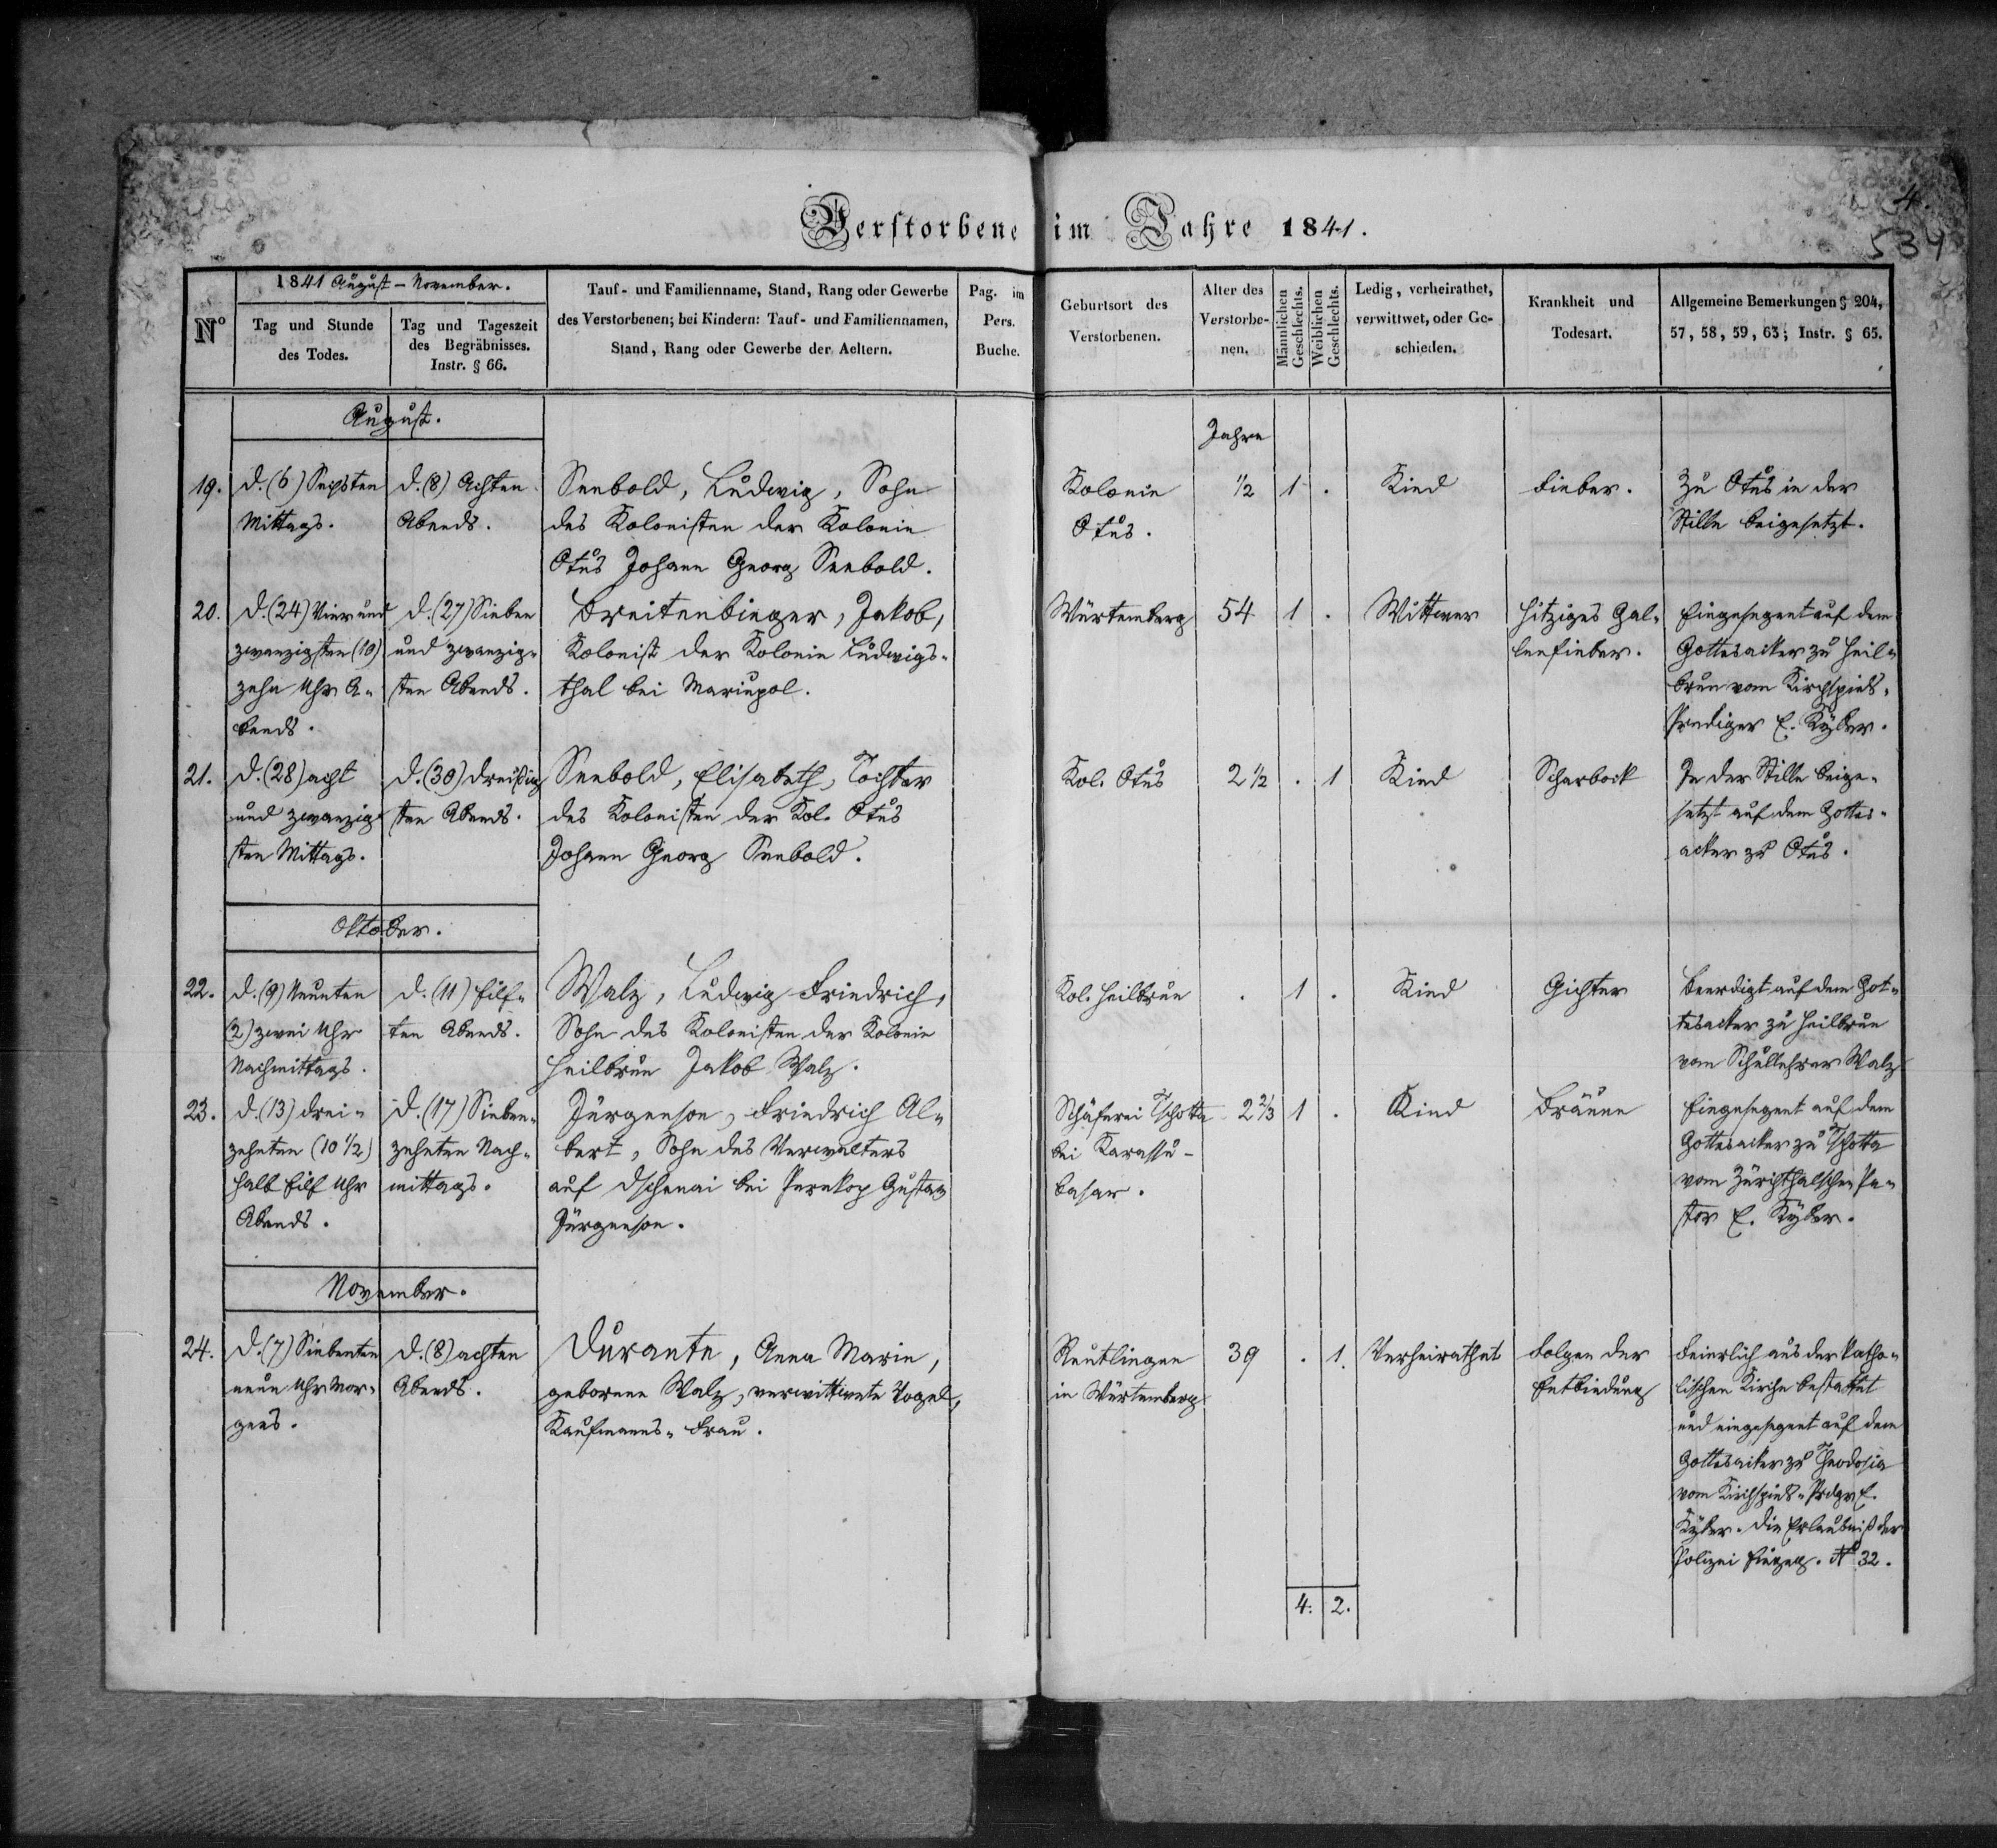 4.
534
Verstorbene im Jahre 1841.
Nº
1841 August – November.
Tag und Stunde des Todes.
Tag und Tageszeit des Begräbnisses. Instr. § 66.
Tauf- und Familienname, Stand, Rang oder Gewerbe
des Verstorbenen; bei Kindern: Tauf- und Familiennamen,
Stand, Rang oder Gewerbe der Aeltern.
Pag. im Pers. Buche.
Geburtsort des Verstorbenen.
Alter des Verstorbe-nen.
Männlichen Geschlechts.
Weiblichen Geschlechts.
Ledig, verheirathet, verwittwet, oder Ge-schieden.
Krankheit und Todesart.
Allgemeine Bemerkungen § 204, 57, 58, 59, 63; Instr. § 65.
August.
Jahre
19.
d. (6) Sechsten
Mittags.
d. (8) Achten
Abends.
Seebold, Ludwig, Sohn
des Kolonisten der Kolonie
Otus Johann Georg Seebold.
Kolonie
Otus.
½
1
.
Kind
Fieber.
Zu Otus in der
Stille beigesetzt.
20.
d. (24) Vier und
zwanzigsten (10)
zehn Uhr A-
bends.
d. (27) Sieben
und zwanzig-
sten Abends.
Breitenbinger, Jakob,
Kolonist der Kolonie Ludwigs-
thal bei Mariupol.
Würtemberg
54
1
.
Wittwer
Hitziges Gal-
lenfieber.
Eingesegnet auf dem
Gottesacker zu Heil-
brun vom Kirchspiels-
Prediger E. Kyber.
21.
d. (28) acht
und zwanzig-
sten Mittags.
d. (30) dreißig
sten Abends.
Seebold, Elisabeth, Tochter
des Kolonisten der Kol. Otus
Johann Georg Seebold.
Kol. Otus
2½
.
1
Kind
Scharbock
In der Stille beige-
setzt auf dem Gottes-
acker zu Otus.
Oktober.
22.
d. (9) Neunten
(2) zwei Uhr
Nachmittags.
d. (11) Eilf-
ten Abends.
Walz, Ludwig Friedrich,
Sohn des Kolonisten der Kolonie
Heilbrun Jakob Walz.
Kol. Heilbrun
.
1
.
Kind
Gichter
Beerdigt auf dem Got-
tesacker zu Heilbrun
vom Schullehrer Walz
23.
d. (13) drei-
zehnten (10½)
halb Eilf Uhr
Abends.
d. (17) Sieben-
zehnten Nach-
mittags.
Jürgenson, Friedrich Al-
bert, Sohn des Verwalters
auf Dschenai bei Perekop Gustav
Jürgenson.
Schäferei Tschotta
bei Karassu-
basar.
2⅔
1
.
Kind
Bräune
Eingesegnet auf dem
Gottesacker zu Tschotta
vom Zürichthalschen Pa-
stor E. Kyber.
November.
24.
d. (7) Siebenten
neun Uhr Mor-
gens.
d. (8) achten
Abends.
Durante, Anna Marie,
geborene Walz, verwittwete Vogel,
Kaufmanns-Frau.
Reutlingen
in Würtemberg
39
.
1.
Verheirathet
Folgen der
Entbindung
Feierlich aus der katho-
lischen Kirche bestattet
und eingesegnet auf dem
Gottesacker zu Theodosia
vom Kirchspiels-Predgr E.
Kyber. Die Erlaubniß der
Polizei N 32.
4.
2.